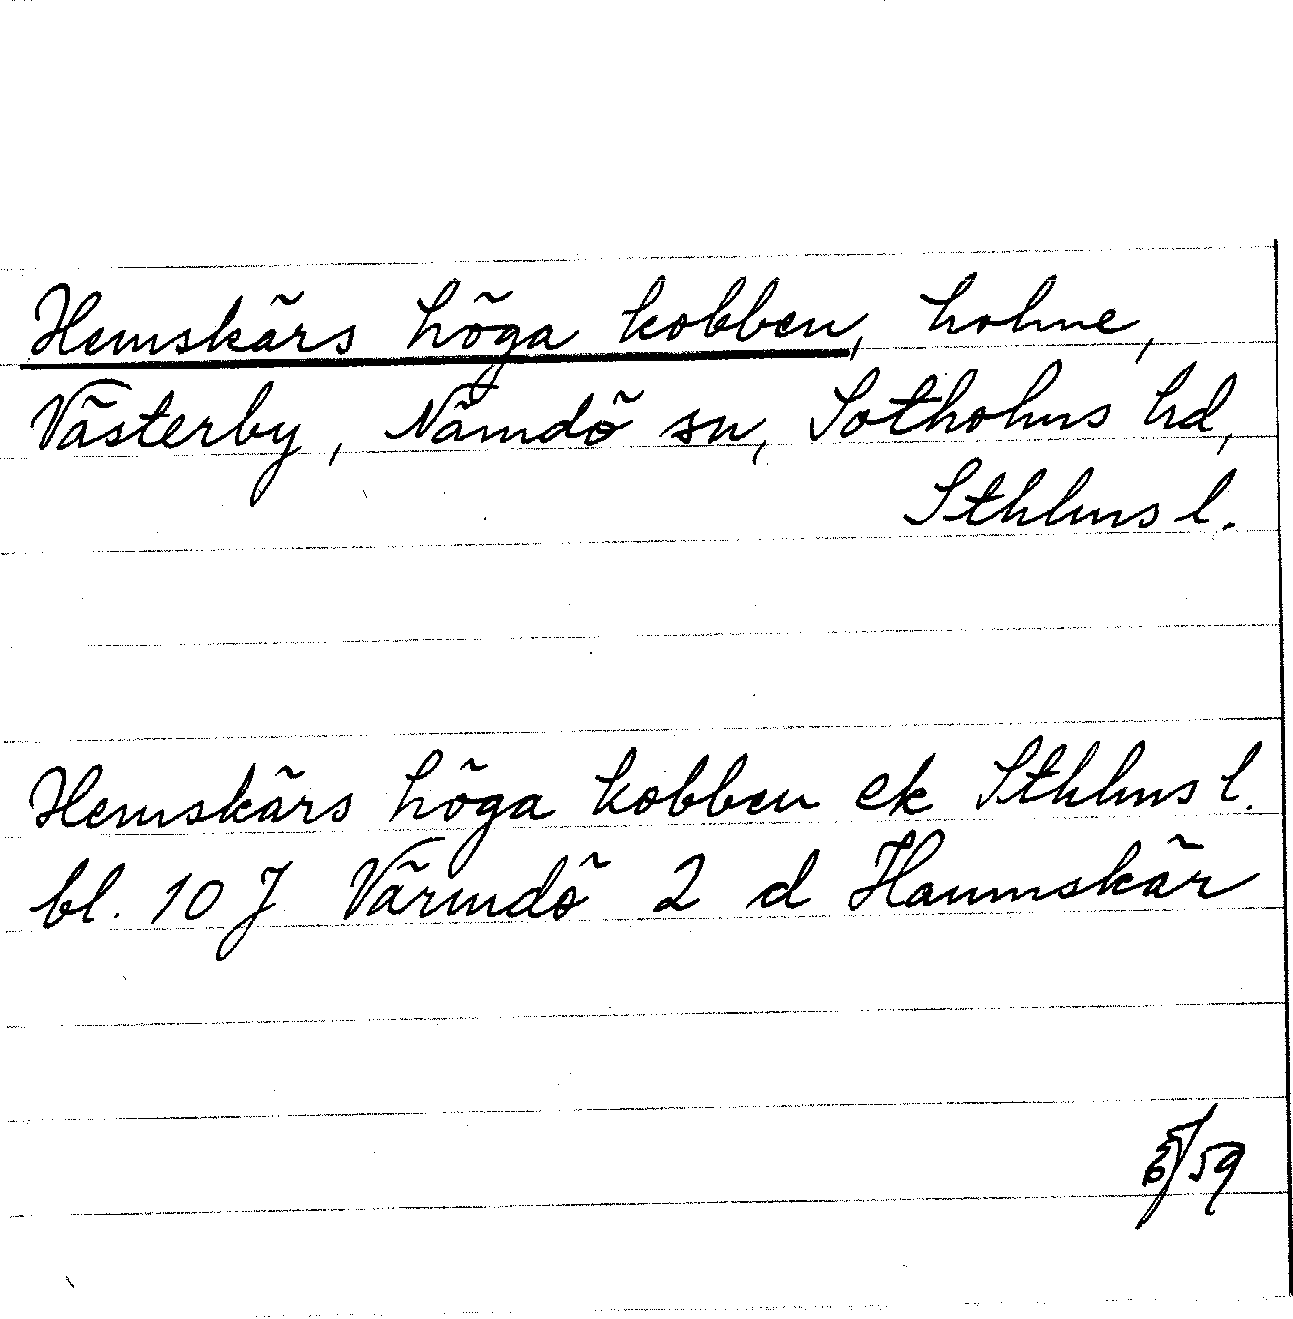 Hemskärs höga kobben, holme,
Västerby, Nämdö sn, Sotholms hd,
Sthlms l.
Hemskärs höga kobben ek Sthlms l.
bl. 10 J Värmdö 2 d Hammskär
/59